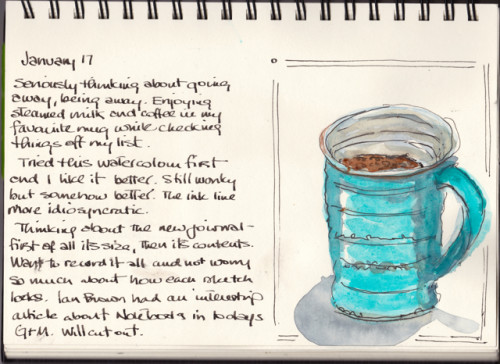 January 17
Seriously thinking about going
away, being away. Enjoying
steamed milk and coffee in my
favourite mug while checking
things off my list.
Tried this watercolour first
and I like it better. Still wonky
but somehow better. The ink line
more idiosyncratic.
Thinking about the new journal-
first of all its size, then its contents.
Want to record it all and not worry
so much about how each sketch
looks. Ian Brown had an interesting
article about Notebooks in todays
G+M. Will cut out.